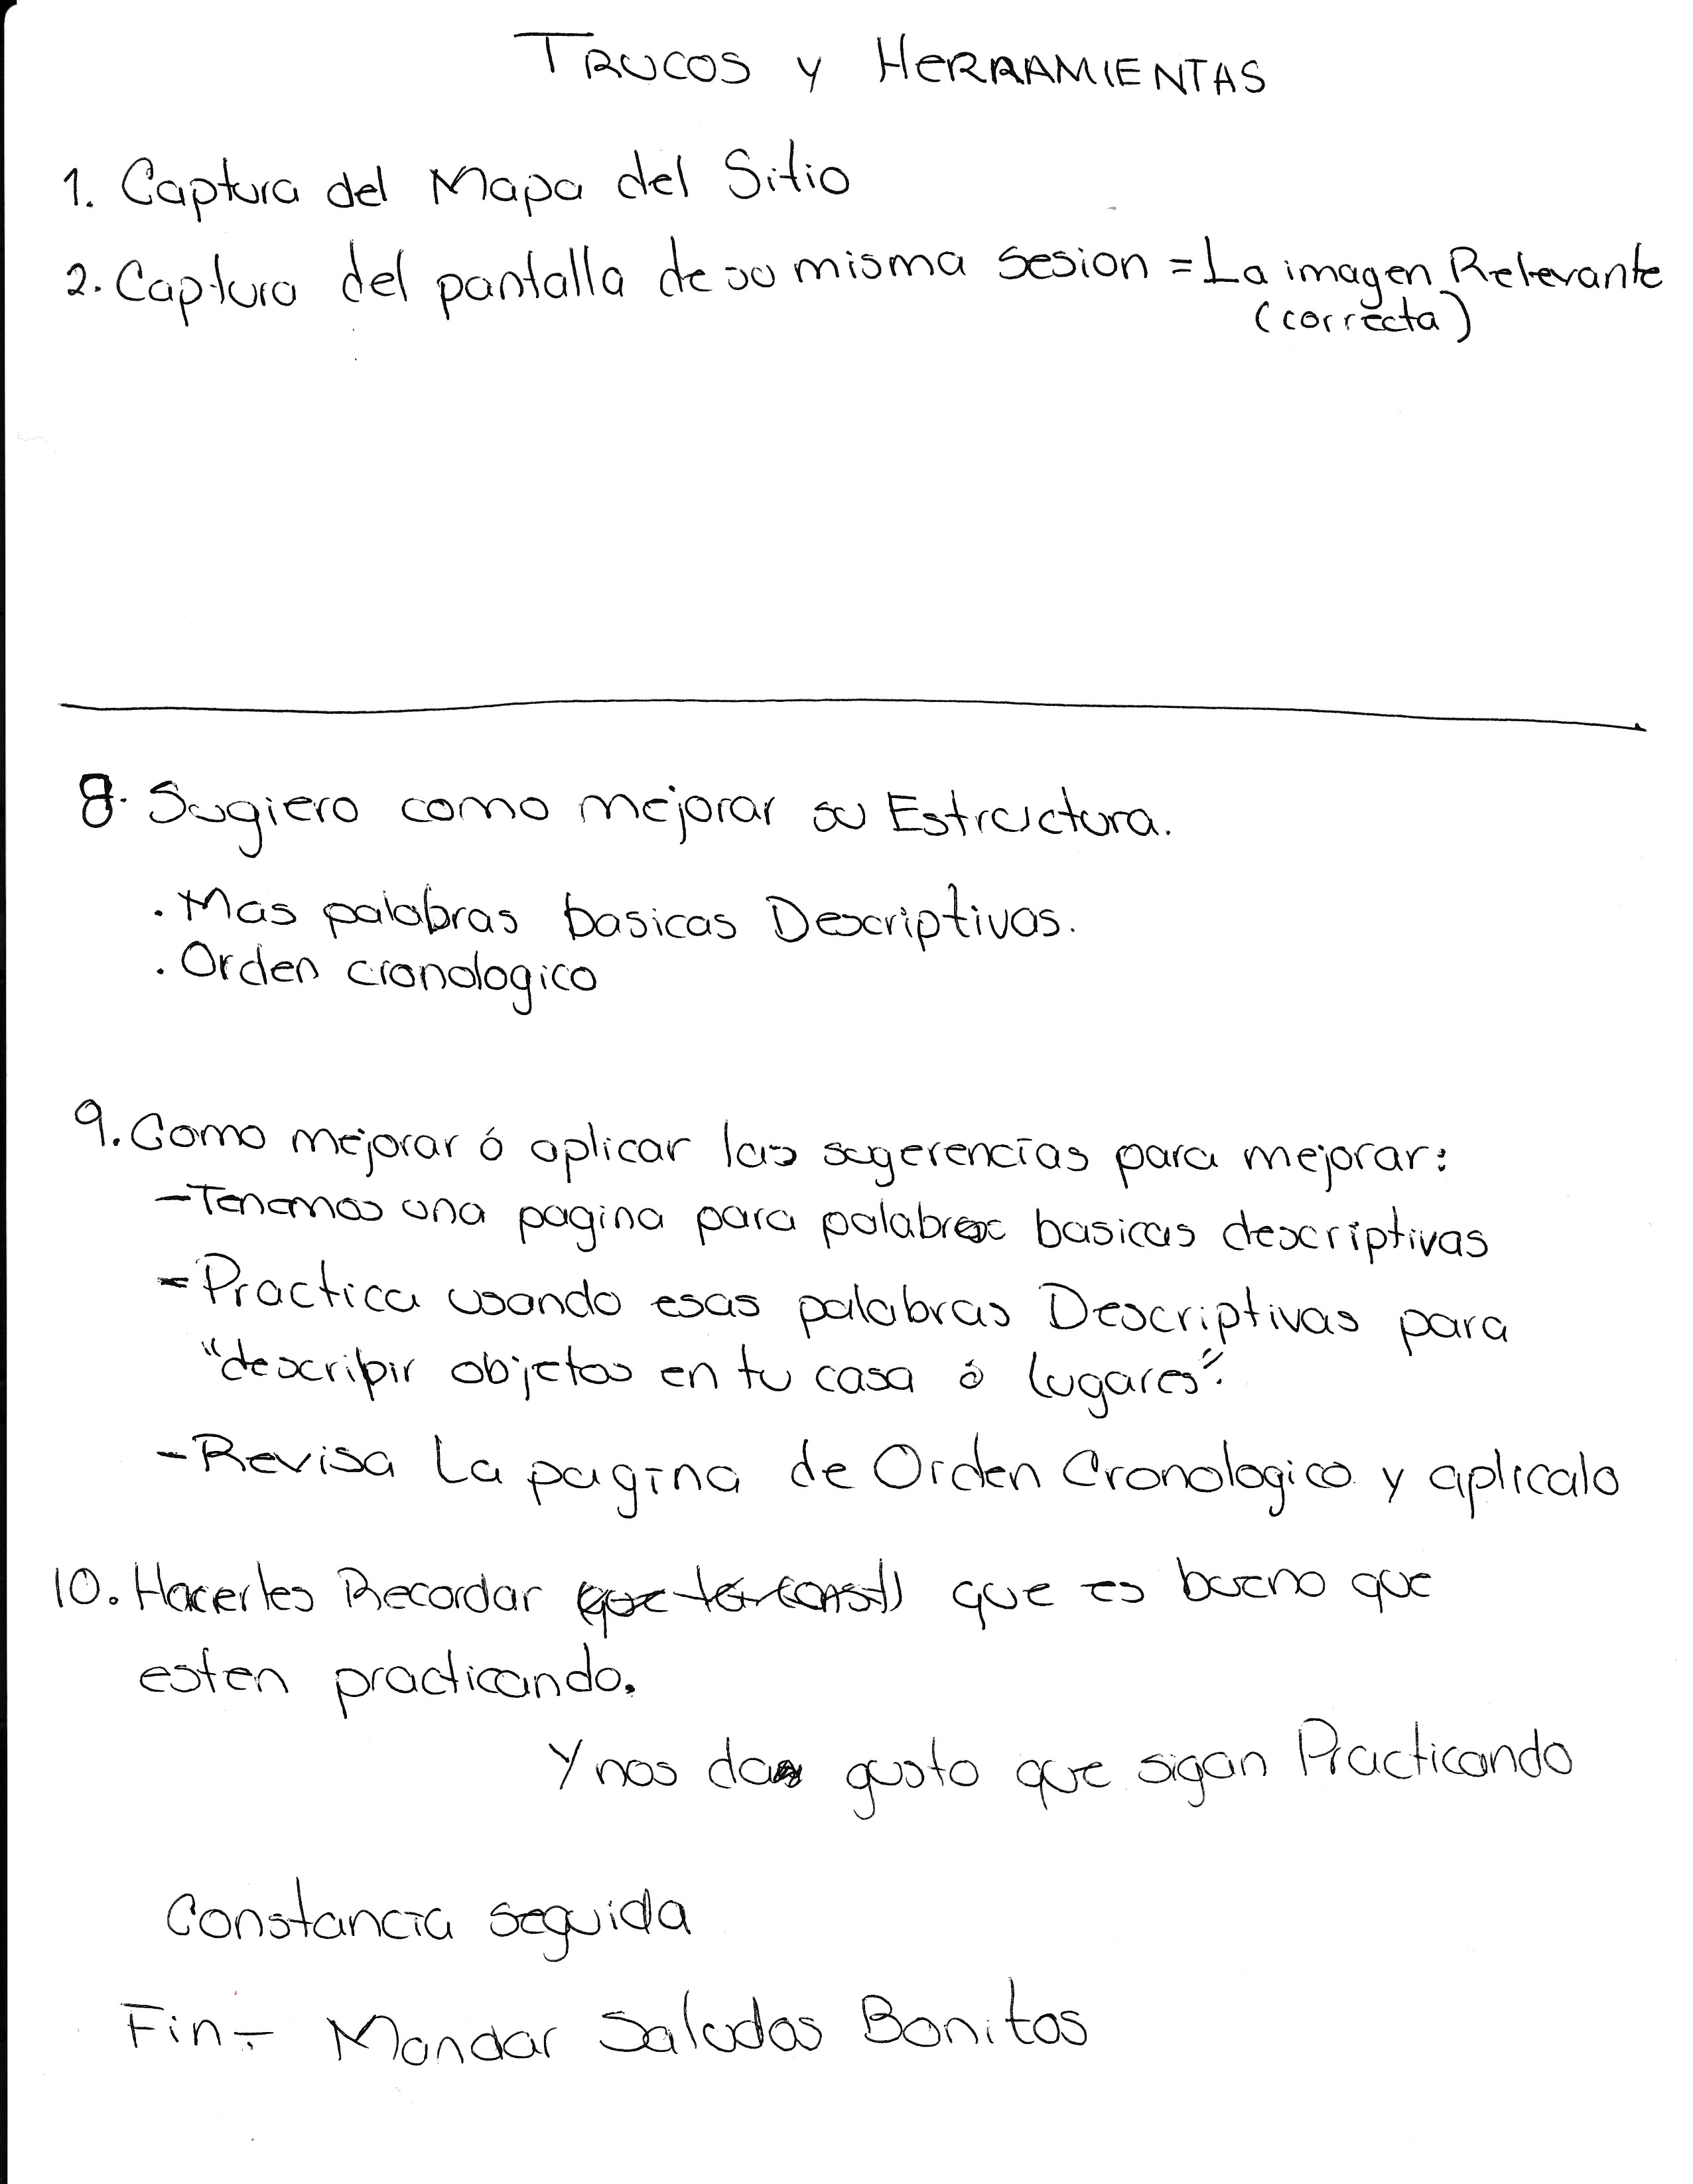 TRUCOS y HERRAMIENTAS
1. Captura del Mapa del Sitio
2. Captura del pantalla de su misma sesion = La imagen Relevante
(correcta)
8. Sugiero como mejorar su Estructura.
. Mas palabras basicas Descriptivas.
. Orden cronologico
9. Como mejorar ó aplicar las sugerencias para mejorar:
- Tenemos una pagina para palabras basicas descriptivas
- Practica usando esas palabras Descriptivas para
"describir objetos en tu casa ó lugares".
- Revisa La pagina de Orden Cronologico y aplicalo
10. Hacerles Recordar que es bueno que
esten practicando.
Y nos da gusto que sigan Practicando
Constancia seguida
Fin.- Mandar Saludos Bonitos